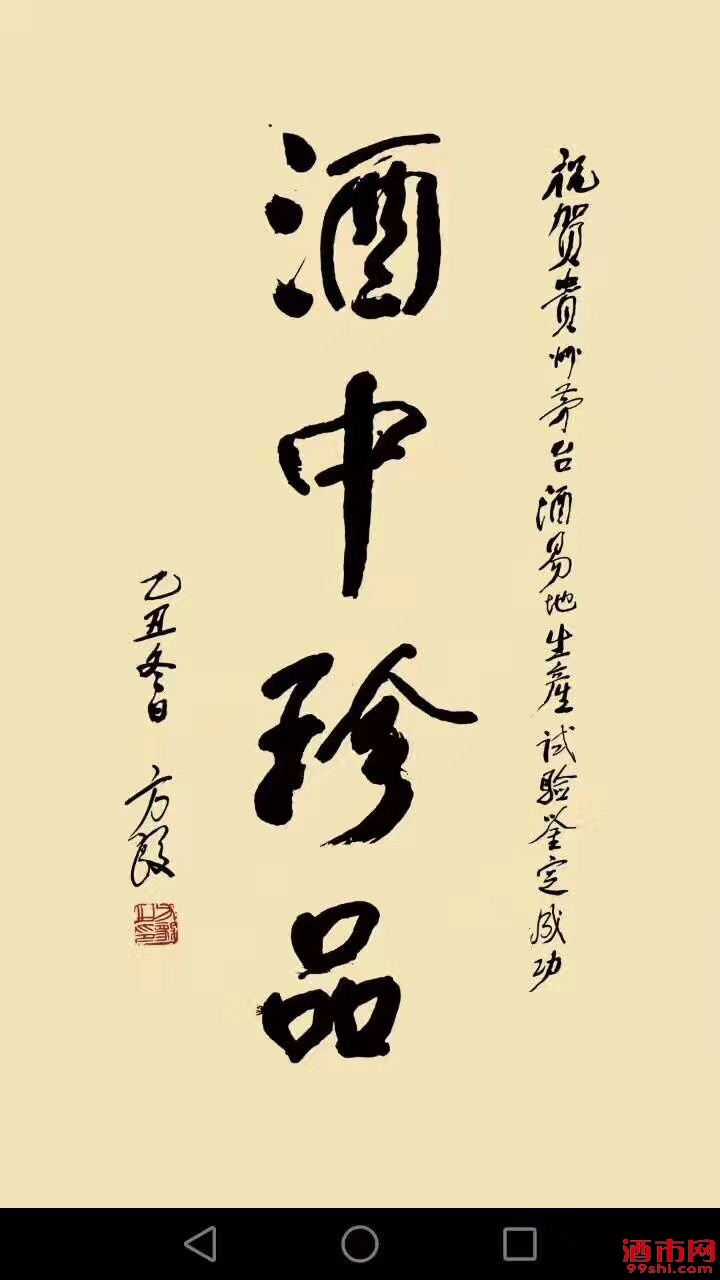 祝贺贵州茅台酒易地生產试验鉴定成功
酒中珍品
乙丑冬日 方毅
酒市网
99shi.com